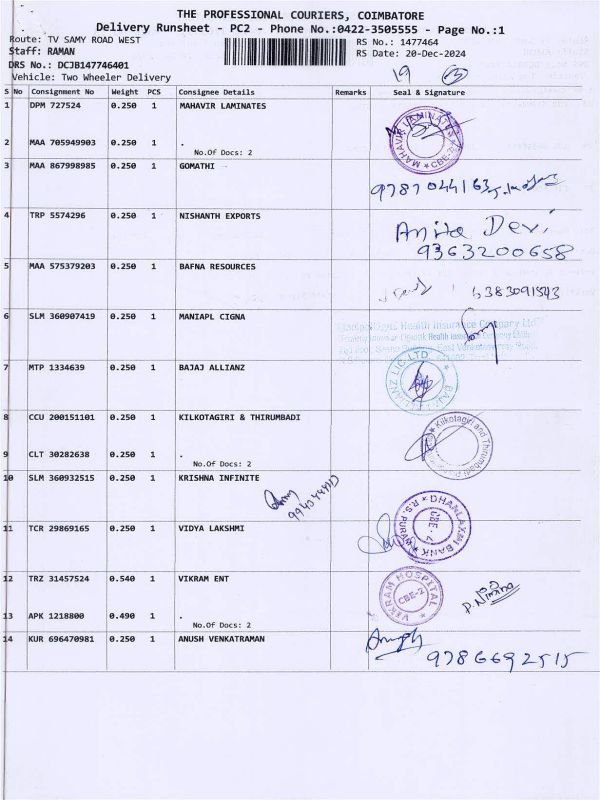 THE PROFESSIONAL COURIERS, COIMBATORE
Delivery Runsheet - PC2 - Phone No.:0422-3505555 - Page No.:1
Route: TV SAMY ROAD WEST RS No.: 1477464
Staff: RAMAN RS Date: 20-Dec-2024
DRS No.: DCJB147746401
Vehicle: Two Wheeler Delivery 19 (13)
S No Consignment No Weight PCS Consignee Details Remarks Seal & Signature
1 DPM 727524 0.250 1 MAHAVIR LAMINATES
MAHAVIR LAMINATES CBE-2
2 MAA 705949903 0.250 1 .
No.Of Docs: 2
3 MAA 867998985 0.250 1 GOMATHI
9787044163
4 TRP 5574296 0.250 1 NISHANTH EXPORTS
Anita Devi
9363200658
5 MAA 575379203 0.250 1 BAFNA RESOURCES
6383091543
6 SLM 360907419 0.250 1 MANIAPL CIGNA
Health Insurance Company Ltd
7 MTP 1334639 0.250 1 BAJAJ ALLIANZ
8 CCU 200151101 0.250 1 KILKOTAGIRI & THIRUMBADI
Kilkotagiri and Thirumbadi
9 CLT 30282638 0.250 1 .
No.Of Docs: 2
10 SLM 360932515 0.250 1 KRISHNA INFINITE
DHANLAXMI BANK R.S. PURAM CBE-2
11 TCR 29869165 0.250 1 VIDYA LAKSHMI
12 TRZ 31457524 0.540 1 VIKRAM ENT
VIKRAM HOSPITAL CBE-2
13 APK 1218800 0.490 1 .
No.Of Docs: 2
14 KUR 696470981 0.250 1 ANUSH VENKATRAMAN
9786692515